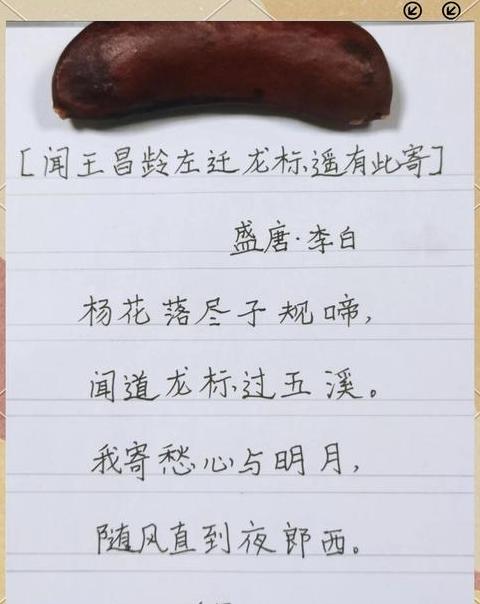 [闻王昌龄左迁龙标遥有此寄]
盛唐·李白
杨花落尽子规啼,
闻道龙标过五溪。
我寄愁心与明月,
随风直到夜郎西。